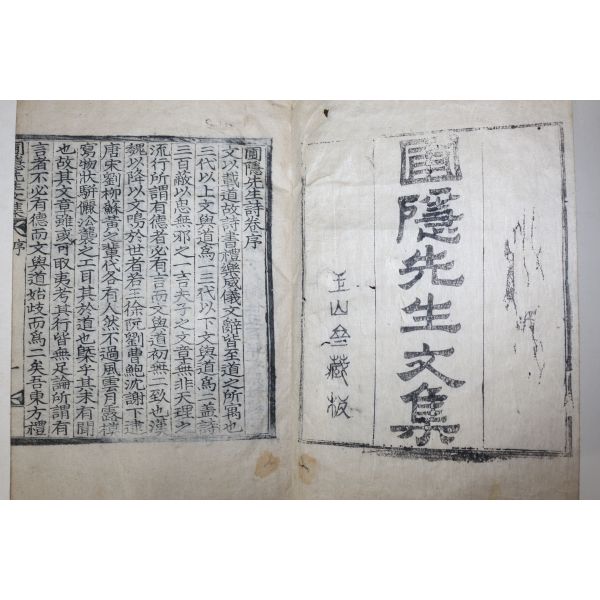 圃隱先生文集
玉山叄藏板
圃隱先生詩卷序
文以載道故詩書禮樂威儀文辭皆至道之所寓也
三代以上文與道爲一三代以下文與道爲二蓋詩
三百蔽以思無邪之一言夫子之文章無非天理之
流行所謂有德者必有言而文與道初無二致也漢
魏以降以文鳴於世者若徐阮劉曹鮑沈謝下逮
唐宋劉柳蘇黃之輩代各有人然不過風雲月露模
寫物狀騈儷之工而其於道也槩乎其未有聞
也故其文章雖或可取夷考其行皆無足論所謂有
言者不必有德而文與道始歧而爲二矣吾東方禮
圃隱先生文集 序 一